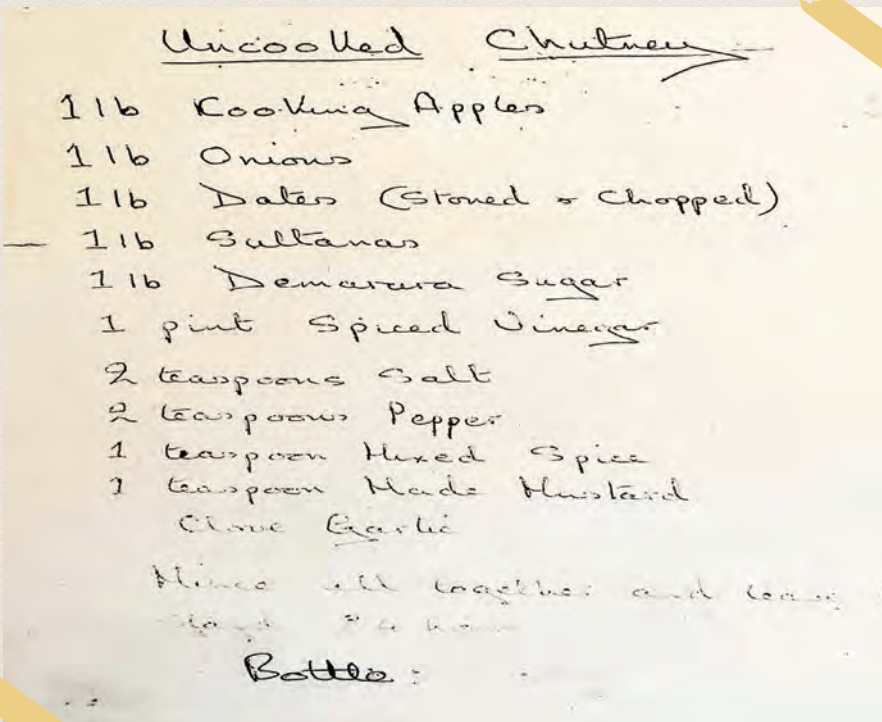 Uncooked Chutney
1 lb Cooking Apples
1 lb Onions
1 lb Dates (Stoned & Chopped)
1 lb Sultanas
1 lb Demarara Sugar
1 pint Spiced Vinegar
2 teaspoons Salt
2 teaspoons Pepper
1 teaspoon Mixed Spice
1 teaspoon Made Mustard
Clove Garlic
Mince all together and leave
stand 24 hours
Bottle: